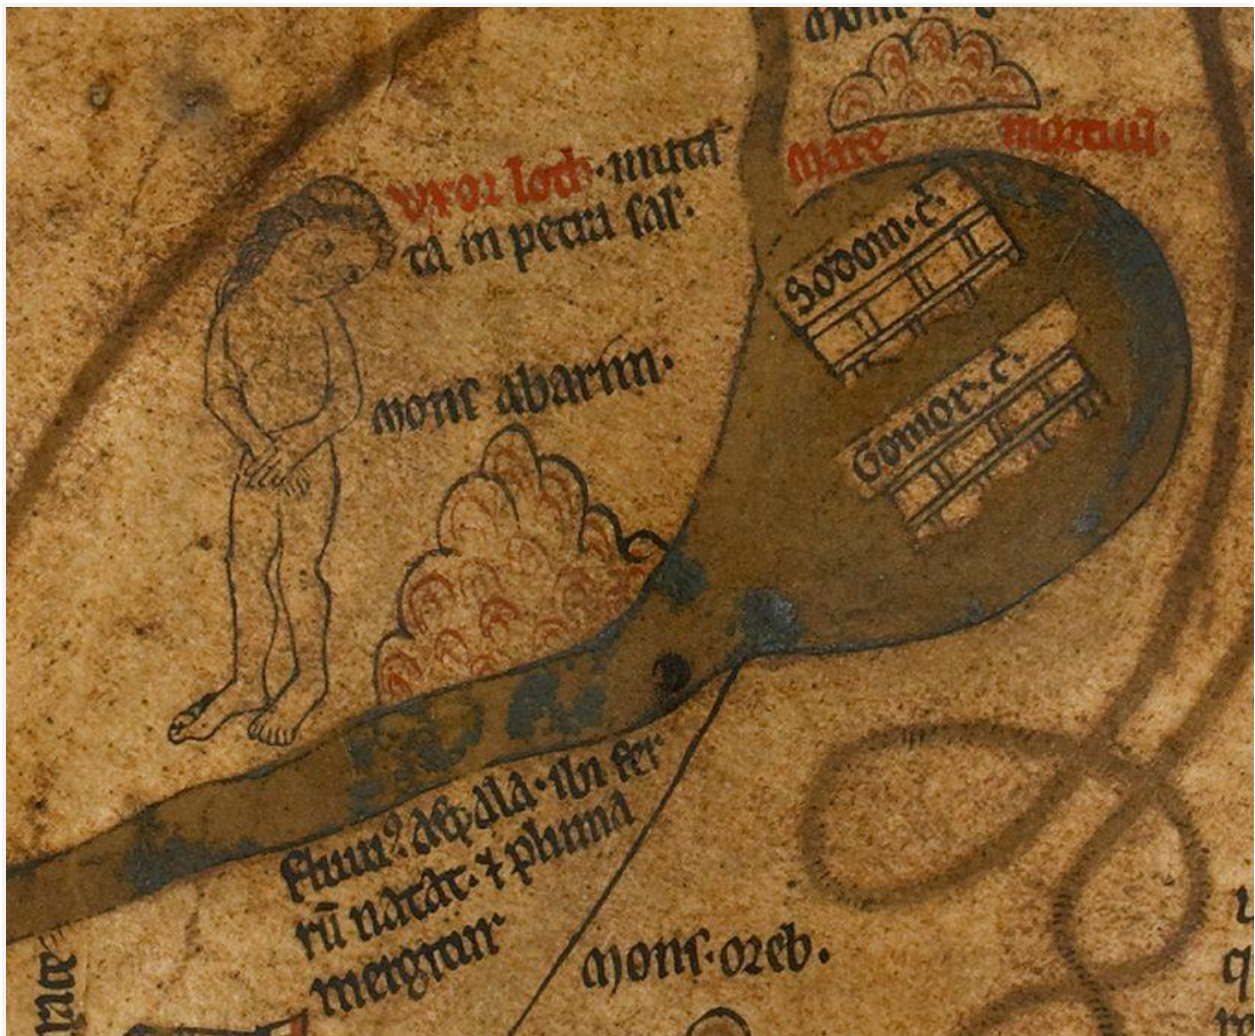 Mare mortuū.
Uxor loth · muta
ta in petra sal'.
Sodom · c̄.
mons abarim.
Gomor · c̄.
ibi fer
rū natat · ⁊ pluma
mergitur
mons · oreb.